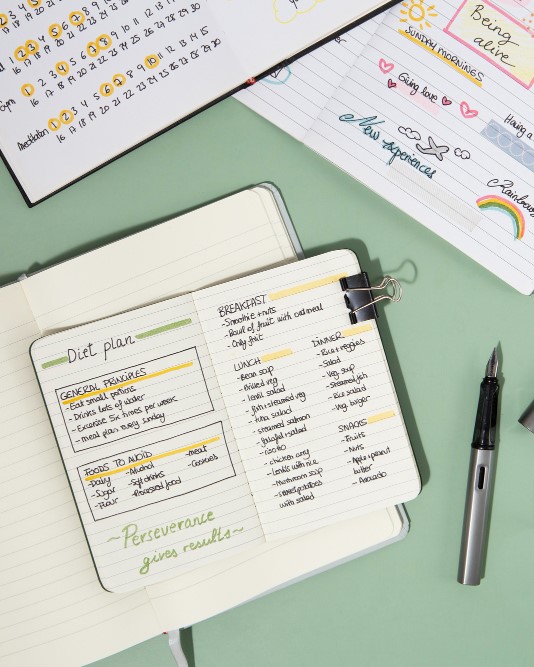 1 2 3 4 5 6 7 8 9 10 11 12 13 14 15
16 17 18 19 20 21 22 23 24 25 26 27 28 29 30
Gym 1 2 3 4 5 6 7 8 9 10 11 12 13 14 15
16 17 18 19 20 21 22 23 24 25 26 27 28 29 30
Meditation 1 2 3 4 5 6 7 8 9 10 11 12 13 14 15
16 17 18 19 20 21 22 23 24 25 26 27 28 29 30
Being
alive
SUNDAY MORNINGS
Giving love
Having a
New experiences
Rainbows
Diet plan
GENERAL PRINCIPLES
- Eat small portions
- Drinks lots of water
- Excercise six times per week
- meal plan every sunday
FOODS TO AVOID
- Dairy
- Sugar
- Flour
- Alcohol
- Soft drinks
- Processed food
- meat
- Candies
~Perseverance
gives results~
BREAKFAST
- Smoothie + nuts
- Bowl of fruit with oatmeal
- Only fruit
LUNCH
- Bean soup
- Grilled veg
- lentil salad
- fish + steamed veg
- tuna salad
- steamed salmon
- falafel + salad
- risotto
- chicken curry
- Lentils with rice
- Mushroom soup
- sweet potatoes
with salad
DINNER
- Rice + veggies
- Salad
- Veg soup
- Steamed fish
- Rice salad
- Veg burger
SNACKS
- Fruits
- Nuts
- Apple + peanut
butter
- Avocado